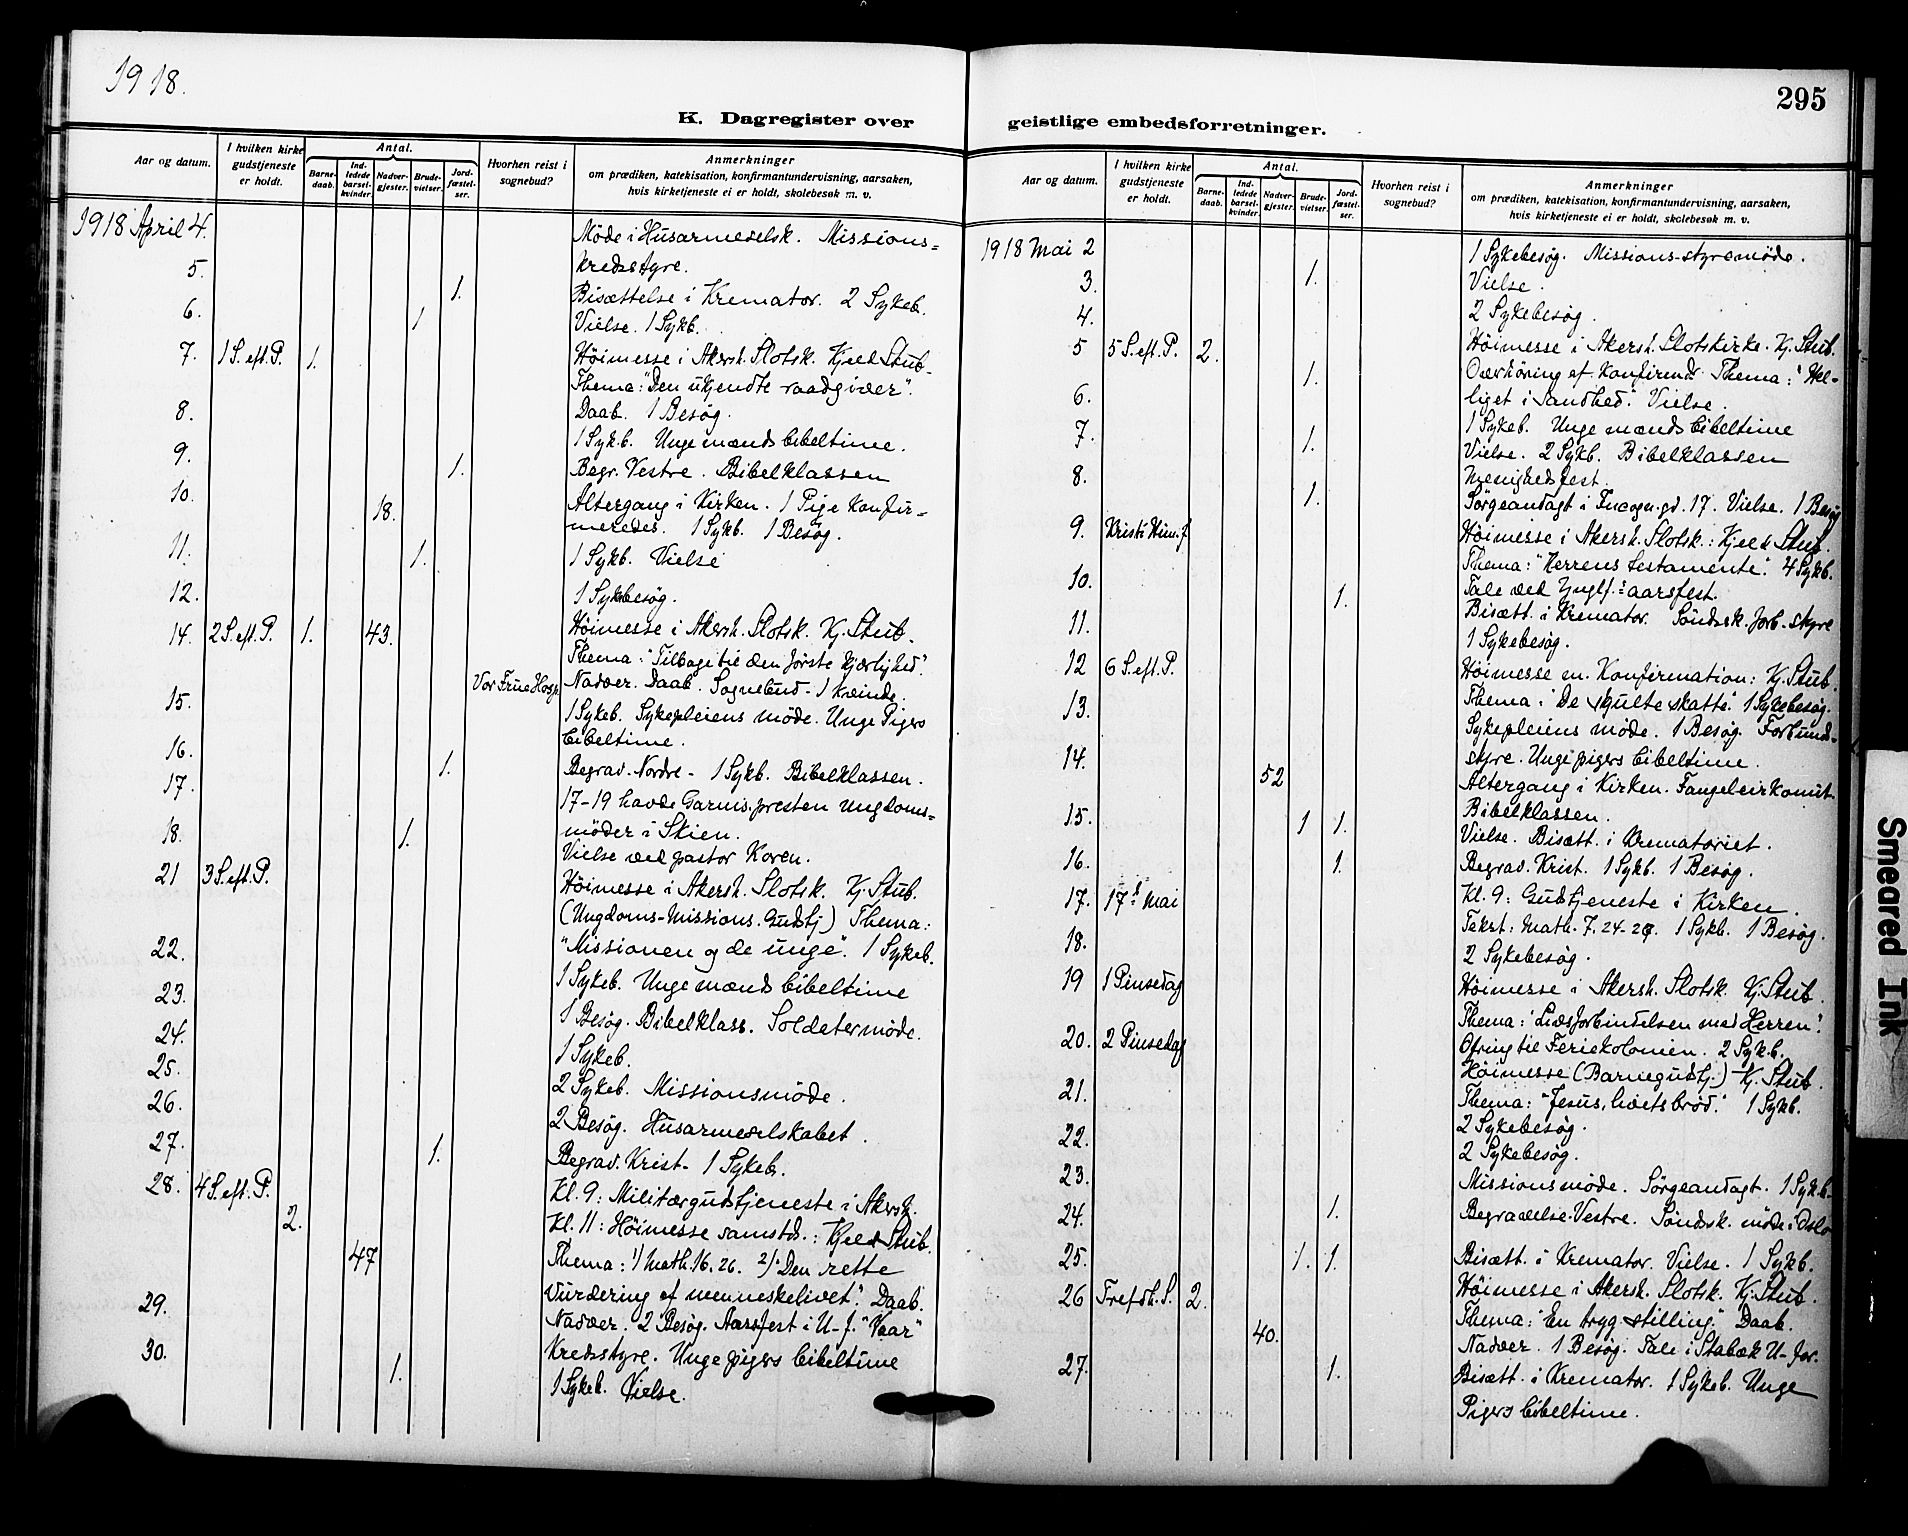 1918.
K. Dagregister over
Aar og datum.
I hvilken kirke gudstjeneste er holdt.
Antal.
Barne-daab.
Ind-ledede barsel-kvinder.
Nadver-gjester.
Brude-vielser.
Jord-fæstel-ser.
Hvorhen reist i sognebud?
Anmerkninger
om prædiken, katekisation, konfirmantundervisning, aarsaken,
hvis kirketjeneste ei er holdt, skolebesøk m. v.
1918 April 4. Møde i Husarmeselsk. Missions=
kredsstyre.
5. 1. Bisættelse i Kremator. 2 Sykeb.
6. 1 Vielse. 1 Sykb.
7. 1 S. eft. P. 1. Høimesse i Akersh. Slotsk. Kjeld Stub.
Thema: "Den ukjendte raadgiver".
Daab. 1 Besøg.
8. 1 Sykb. Unge mænds bibeltime.
9. 1. Begr. Vestre. Bibelklassen
10. 18. Altergang i Kirken. 1 Pige konfir=
meredes. 1 Sykb. 1 Besøg.
11. 1. 1 Sykb. Vielse
12. 1 Sykebesøg.
14. 2 S. eft. P. 1. 43. Høimesse i Akersh. Slotsk. Kj. Stub.
Thema: "Tilbage til den første kjærlighed".
Vor Frue Hosp. Nadver. Daab. Sognebud - 1 Kvinde.
15. 1 Sykeb. Sykepleiens møde. Unge Pigers
bibeltime.
16. 1. Begrav. Nordre - 1 Sykb. Bibelklassen.
17. 17-19 havde Garnis.presten Ungdoms=
møder i Skien.
18. 1. Vielse ved pastor Koren.
21 3 S. eft. P. Høimesse i Akersh. Slotsk. Kj. Stub.
(Ungdoms-Missions. Gudstj.) Thema:
"Missionen og de unge". 1 Sykeb.
22. 1 Sykeb. Unge mænds bibeltime
23. 1 Besøg. Bibelklass. Soldatermøde.
24. 1 Sykeb.
25. 2 Sykeb. Missionsmøde.
26. 2 Besøg. Husarmeselskabet.
27. 1. Begrav. Krist. 1 Sykeb.
28. 4 S. eft. P. Kl. 9: Militærgudstjeneste i Akersh.
2. Kl. 11: Høimesse samstds.: Kjeld Stub.
47 Thema: 1) Math. 16. 26. 2) "Den rette
vurdering af menneskelivet". Daab.
29. Nadver. 2 Besøg. Aarsfest i U-f. "Vaar"
Kredsstyre. Unge pigers bibeltime
30. 1. 1 Sykeb. Vielse.
295
geistlige embedsforretninger.
Aar og datum.
I hvilken kirke gudstjeneste er holdt.
Antal.
Barne-daab.
Ind-ledede barsel-kvinder
Nadver-gjester.
Brude-vielser.
Jord-fæstel-ser.
Hvorhen reist i sognebud?
Anmerkninger
om prædiken, katekisation, konfirmantundervisning, aarsaken,
hvis kirketjeneste ei er holdt, skolebesøk m. v.
1918 Mai 2 1 Sykebesøg. Missions-styremøde.
3. 1. Vielse.
4. 2 Sykebesøg.
5 5 S. eft. P. 2. Høimesse i Akersh. Slotskirke. Kj. Stub.
1. Overhøring af Konfirmd. Thema: "Hel-
liget i Sandhed". Vielse.
6. 1 Sykeb. Unge mænds bibeltime
7. 1. Vielse. 2 Sykb. Bibelklassen
8. Menighedsfest.
1. Sørgeandagt i Incogn.gd. 17. Vielse. 1 Besøg
9. Kristi Him.f. Høimesse i Akersh. Slotsk.: Kjeld Stub.
Thema: "Herrens testamente". 4 Sykb.
10. Tale ved Ynglf.=aarsfest.
1. Bisætt. i Kremator. Søndsk. forb. styre
11. 1 Sykebesøg.
12 6 S. eft. P. Høimesse m. Konfirmation: Kj. Stub.
Thema: "De skjulte skatte". 1 Sykebesøg.
13. Sykepleiens møde. 1 Besøg. Forbunds-
styre. Unge pigers bibeltime.
14. 52 Altergang i Kirken. Fangeleirkomit.
Bibelklassen.
15. 1 1. Vielse. Bisætt. i Krematoriet.
16. 1. Begrav. Krist. 1 Sykb. 1 Besøg.
17. 17d Mai Kl. 9: Gudstjeneste i Kirken.
Tekst: Math. 7. 24-29. 1 Sykb. 1 Besøg.
18. 2 Sykebesøg.
19 1 Pinsedag Høimesse i Akersh. Slotsk. Kj. Stub.
Thema: "Livsforbindelsen med Herren".
Ofring til Feriekolonien. 2 Sykb.
20. 2 Pinsedag Høimesse (Barnegudstj.) Kj. Stub.
Thema: "Jesus, livets brød." 1 Sykb.
21. 2 Sykebesøg.
22. 2 Sykebesøg.
23. Missionsmøde. Sørgeandagt. 1 Sykb.
24. 1. Begravelse. Vestre. Søndsk. møde i Oslo
25. 1. 1. Bisætt. i Kremator. Vielse. 1 Sykb.
26 Trefdh. S. 2. Høimesse i Akersh. Slotsk. Kj. Stub.
Thema: "En tryg stilling". Daab.
40. Nadver. 1 Besøg. Tale i Stabæk U-for.
27. 1. Bisætt. i Kremator. 1 Sykeb. Unge
Pigers bibeltime.
Smeared Ink